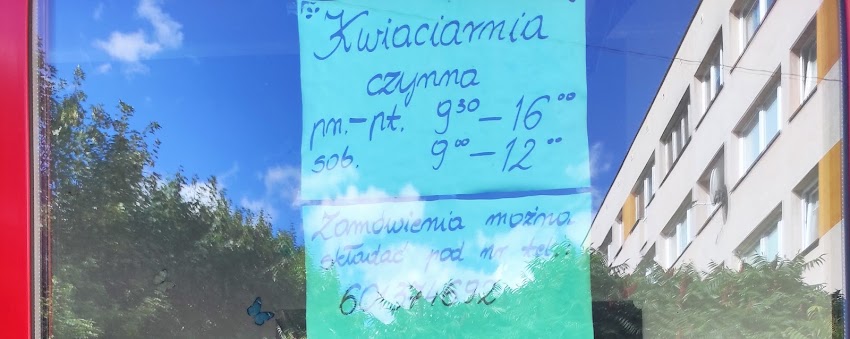 Kwiaciarnia
czynna
pn.-pt. 9³⁰-16⁰⁰
sob. 9⁰⁰-12⁰⁰
Zamówienia można
składać pod nr tel.: